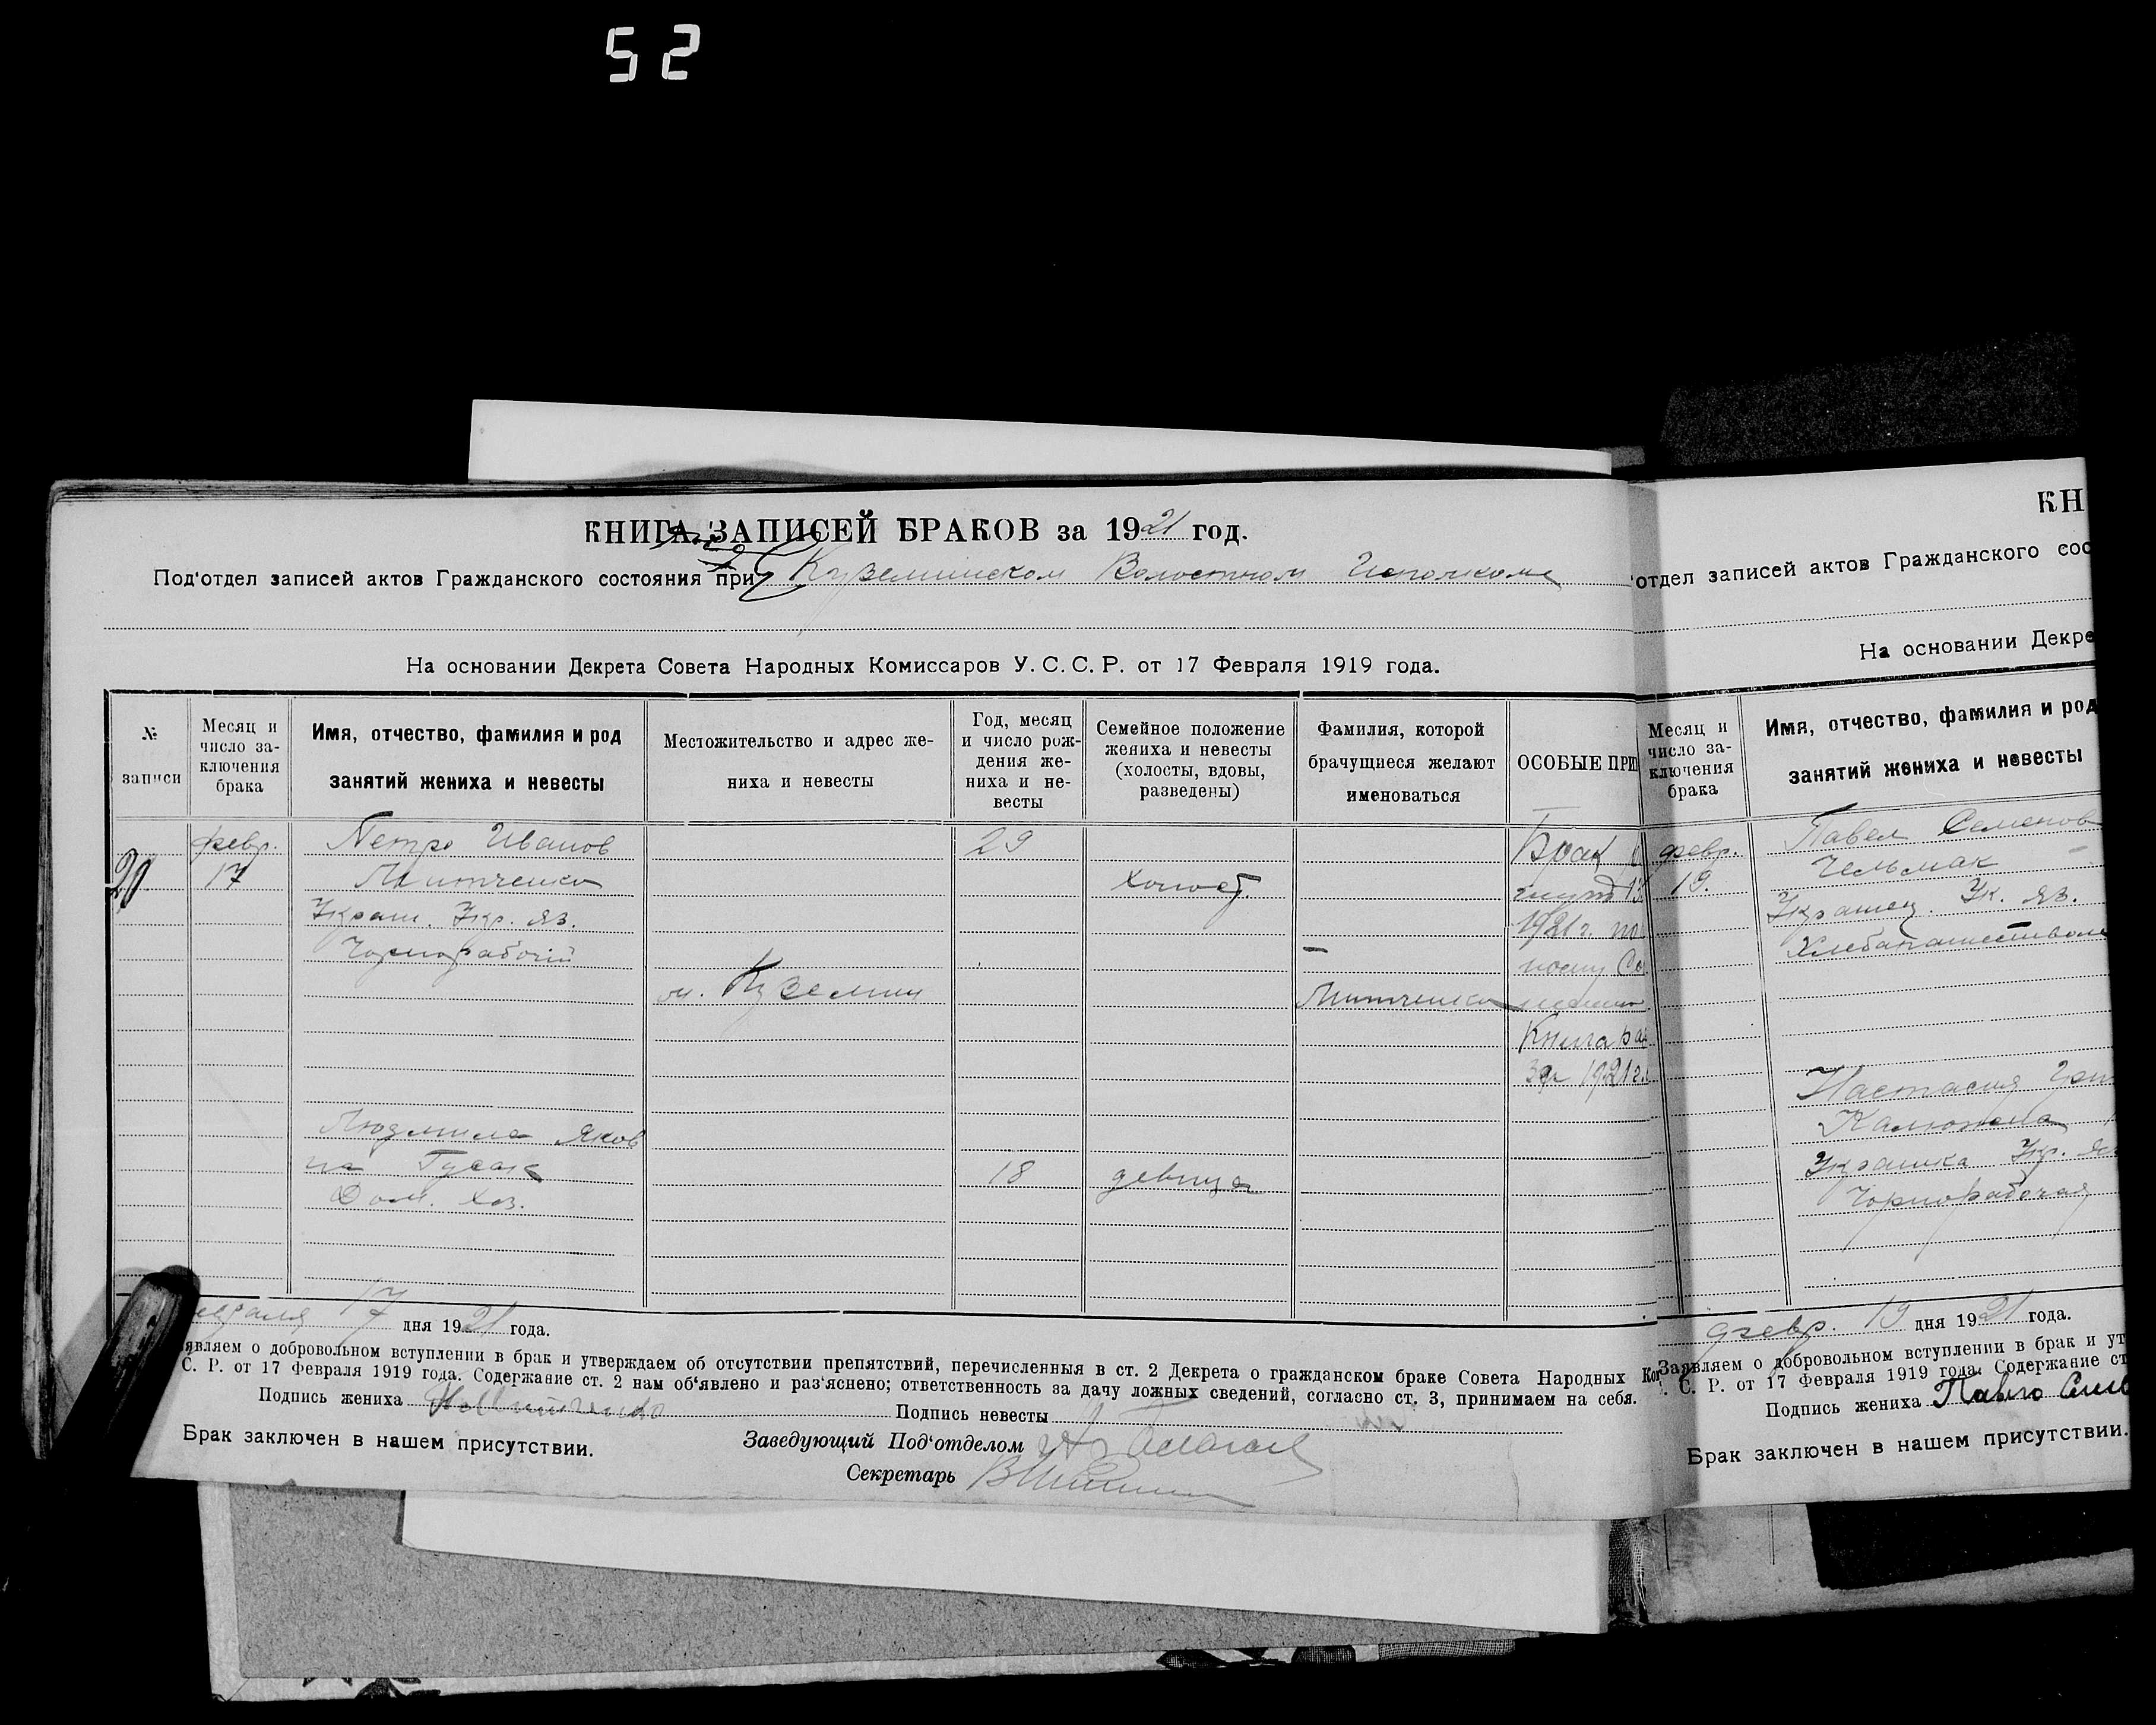 52
КНИГА ЗАПИСЕЙ БРАКОВ за 1921 год.
Под'отдел записей актов Гражданского состояния при Куземинском Волостном Исполкоме
На основании Декрета Совета Народных Комиссаров У.С.С.Р. от 17 Февраля 1919 года.
№ записи
Месяц и число за-
ключения
брака
Имя, отчество, фамилия и род
занятий жениха и невесты
Местожительство и адрес же-
ниха и невесты
Год, месяц
и число рож-
дения же-
ниха и не-
весты
Семейное положение
жениха и невесты
(холосты, вдовы,
разведены)
Фамилия, которой
брачущиеся желают
именоваться
ОСОБЫЕ ПРИ
20
февр.
17
Петро Иванов
Митченко
Украин. Укр. яз.
Чорнорабочій
м. Куземин
29
холост
Митченко
Брак
1921 г. по
Книга раз
1921 г.
Людмила Яков
на Гусак
Дом. хоз.
18
девица
17 дня 1921 года.
являем о добровольном вступлении в брак и утверждаем об отсутствии препятствий, перечисленныя в ст. 2 Декрета о гражданском браке Совета Народных Ко
С. Р. от 17 Февраля 1919 года. Содержание ст. 2 нам об'явлено и раз'яснено; ответственность за дачу ложных сведений, согласно ст. 3, принимаем на себя.
Подпись жениха
Подпись невесты
Брак заключен в нашем присутствии.
Заведующий Под'отделом
Секретарь
КН
отдел записей актов Гражданского сос
На основании Декре
Месяц и
число за-
ключения
брака
Имя, отчество, фамилия и род
занятий жениха и невесты
февр.
19.
Павел Семенов
Чельмак
Украинец. Ук. яз.
Настасия
Калюжна
Украинка Укр. яз
Чорнорабочая
февр. 19 дня 1921 года.
Заявляем о добровольном вступлении в брак и ут
С. Р. от 17 Февраля 1919 года. Содержание ст
Подпись жениха Павло
Брак заключен в нашем присутствии.